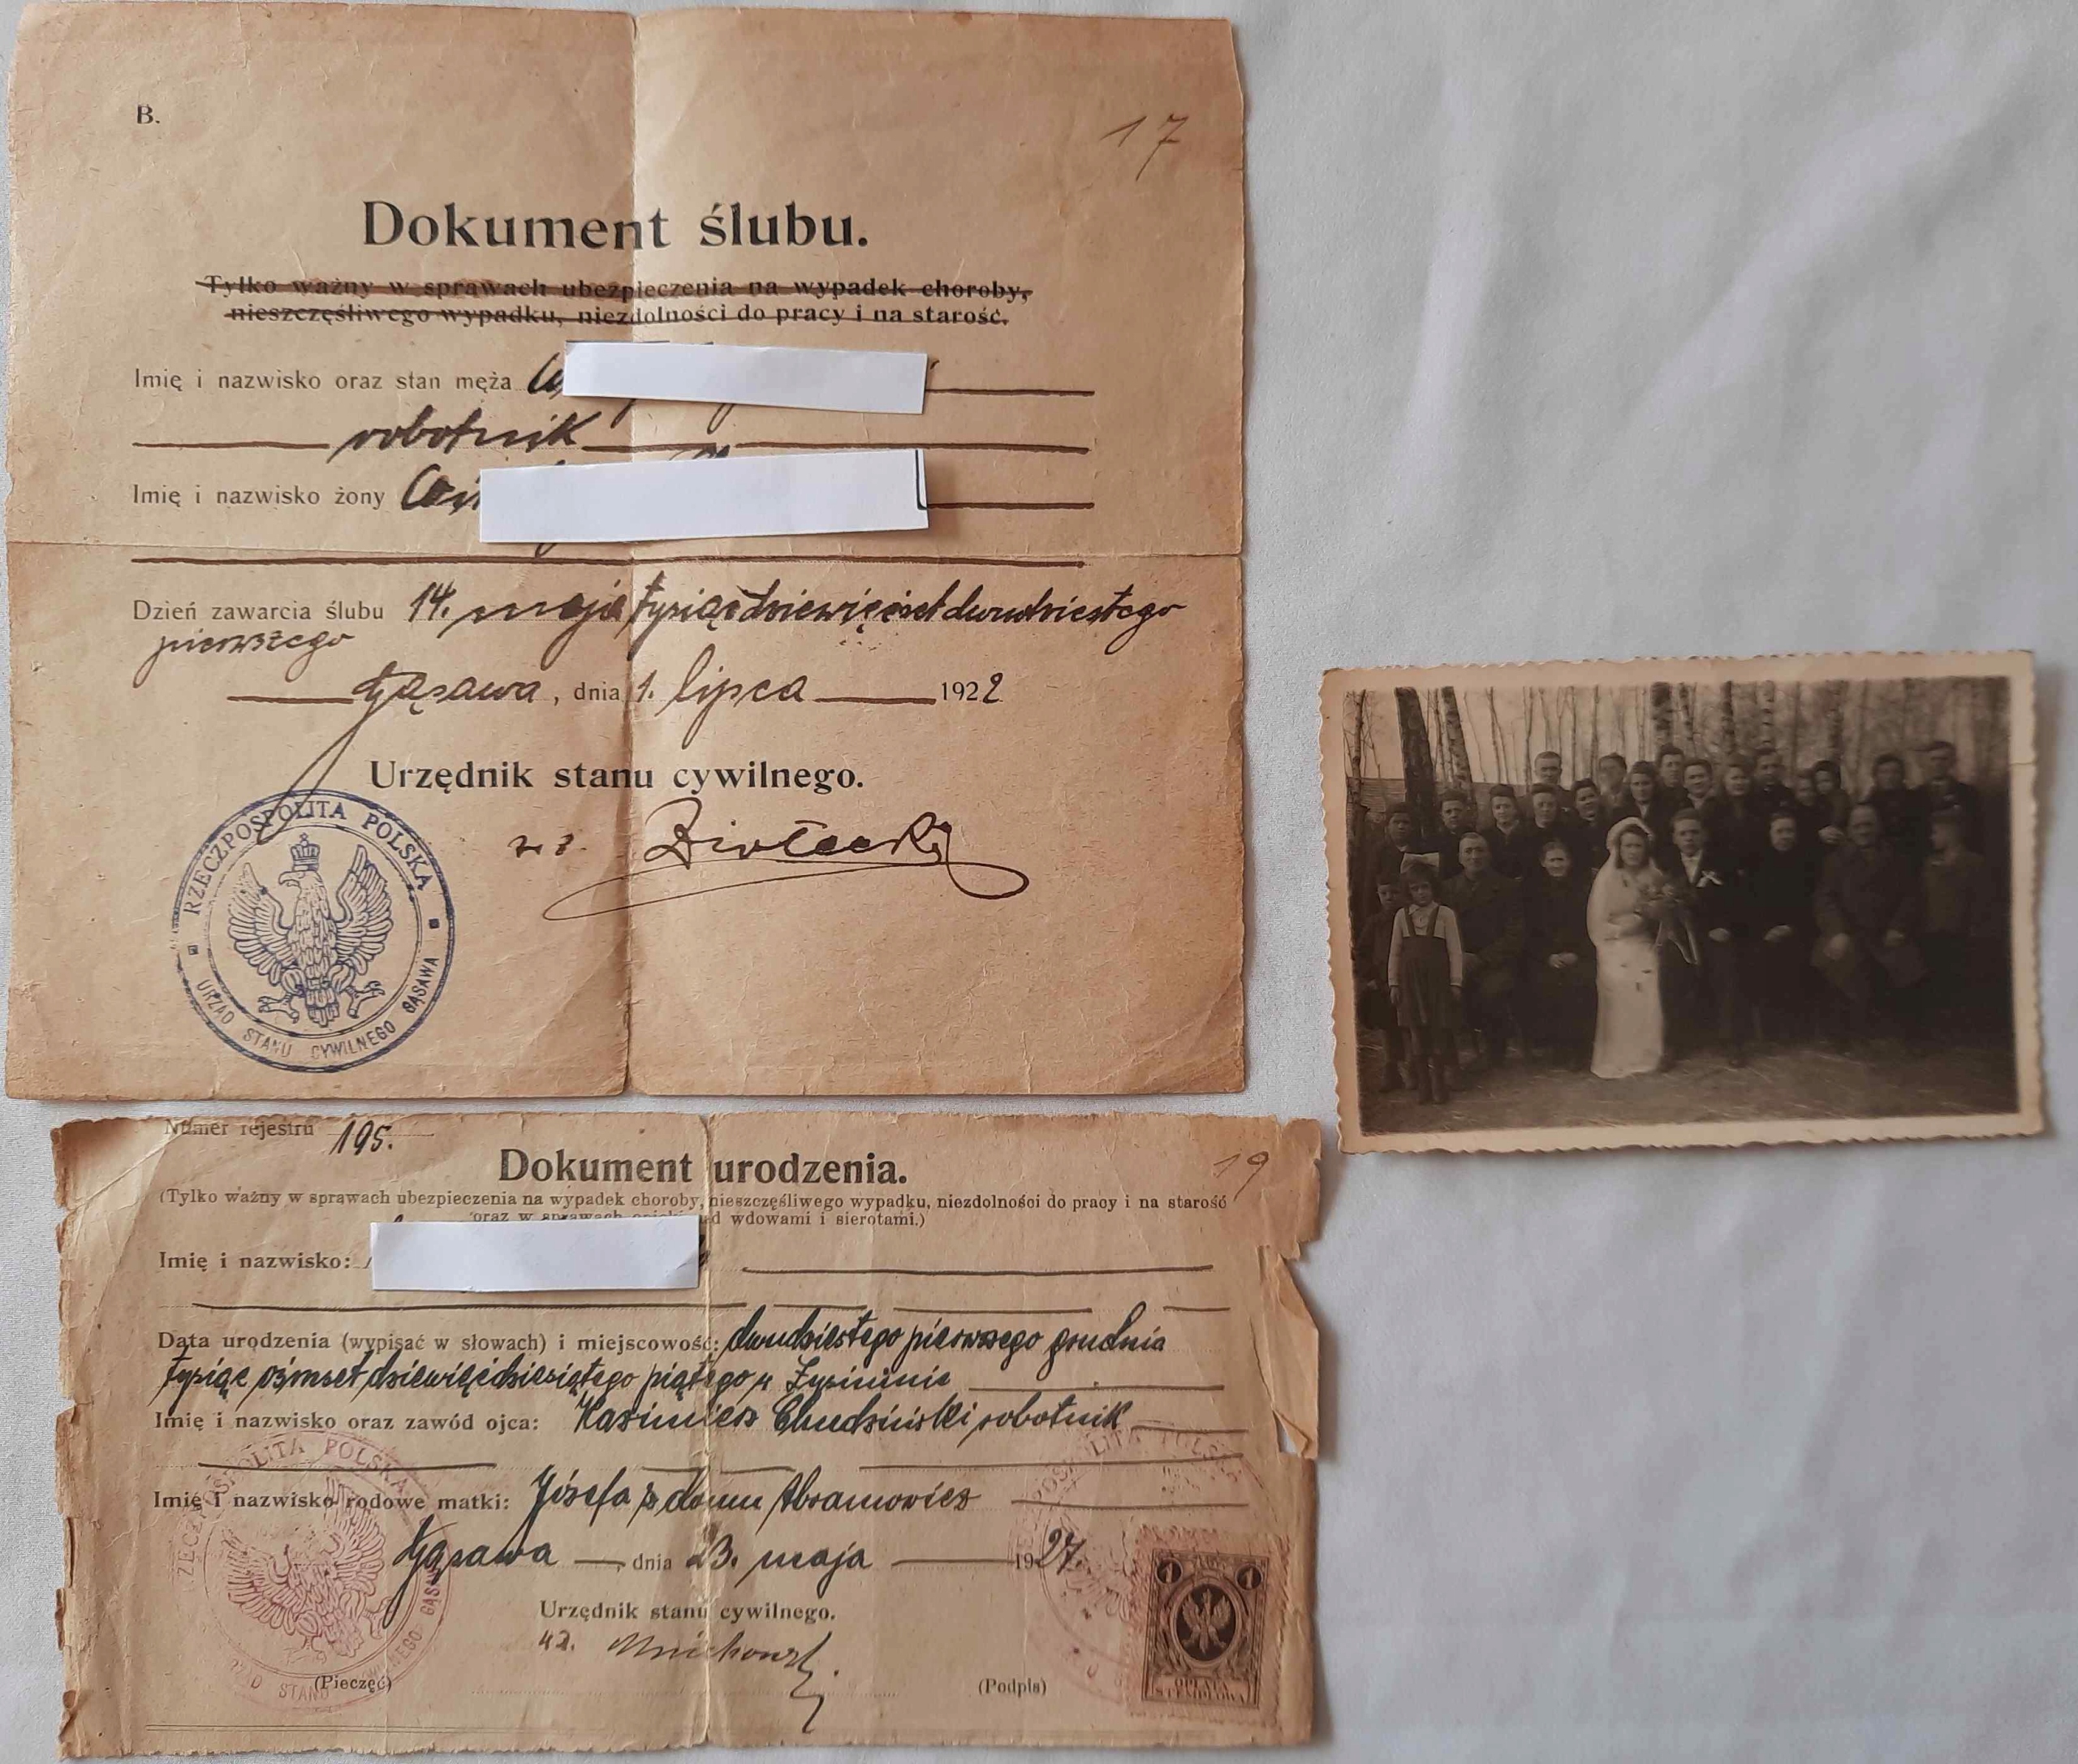 B.
17
Dokument ślubu.
Tylko ważny w sprawach ubezpieczenia na wypadek choroby,
nieszczęśliwego wypadku, niezdolności do pracy i na starość.
Imię i nazwisko oraz stan męża
robotnik
Imię i nazwisko żony
Dzień zawarcia ślubu 14. maja tysiąc dziewięćset dwudziestego
pierwszego
Gąsawa, dnia 1. lipca 1922
Urzędnik stanu cywilnego.
RZECZPOSPOLITA POLSKA
URZĄD STANU CYWILNEGO GĄSAWA
Numer rejestru 195.
Dokument urodzenia.
19
(Tylko ważny w sprawach ubezpieczenia na wypadek choroby, nieszczęśliwego wypadku, niezdolności do pracy i na starość
oraz w sprawach opieki nad wdowami i sierotami.)
Imię i nazwisko:
Data urodzenia (wypisać w słowach) i miejscowość: dwudziestego pierwszego grudnia
tysiąc ośmset dziewięćdziesiątego piątego w
Imię i nazwisko oraz zawód ojca: Kazimierz Chudziński robotnik
Imię i nazwisko rodowe matki: Józefa z domu Abramowicz
Gąsawa, dnia 23. maja 1927.
Urzędnik stanu cywilnego.
(Pieczęć)
(Podpis)
RZECZPOSPOLITA POLSKA
URZĄD STANU CYWILNEGO GĄSAWA
1 1
OPŁATA
STEMPLOWA